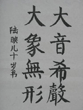 大音希聲
大象無形